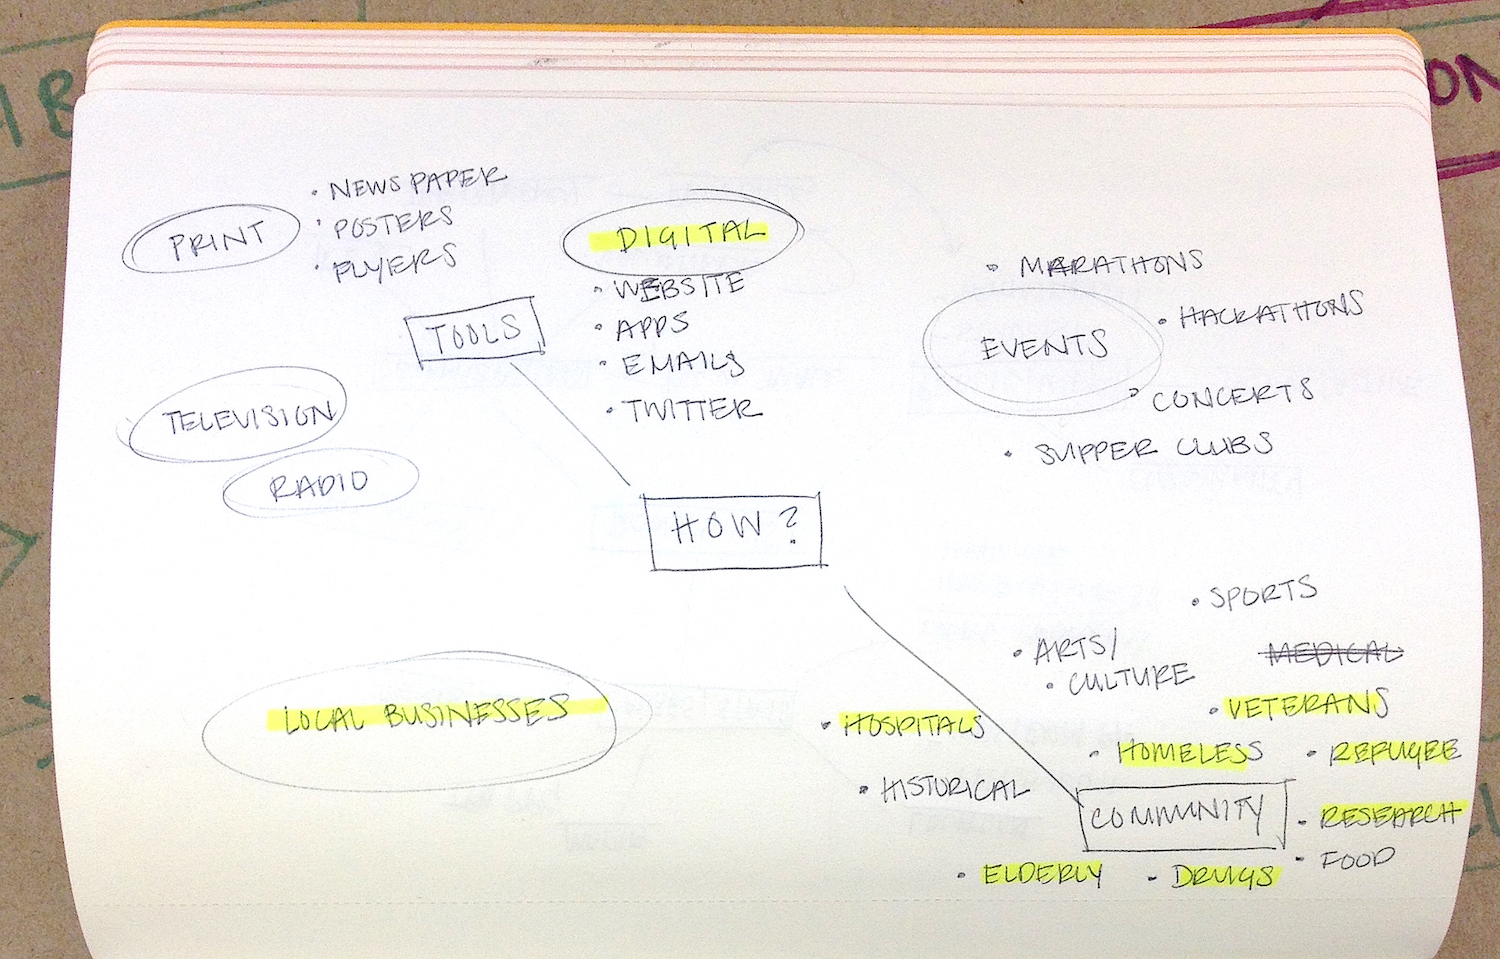 PRINT
• NEWSPAPER
• POSTERS
• FLYERS
DIGITAL
• WEBSITE
• APPS
• EMAILS
• TWITTER
TOOLS
TELEVISION
RADIO
EVENTS
• MARATHONS
• HACKATHONS
• CONCERTS
• SUPPER CLUBS
HOW?
LOCAL BUSINESSES
• SPORTS
• ARTS/
• CULTURE
MEDICAL
• VETERANS
• HOSPITALS
• HOMELESS
• REFUGEE
• HISTORICAL
COMMUNITY
• RESEARCH
• FOOD
• ELDERLY
• DRUGS